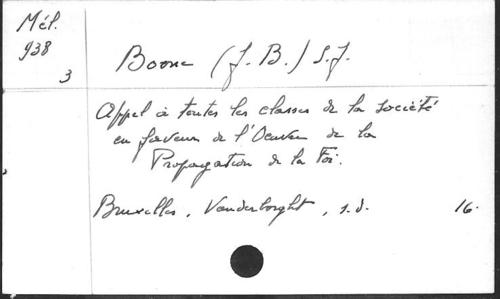 Mél.
938
3
Boone (J. B.) S.J.
Appel à toutes les classes de la société
en faveur de l'Oeuvre de la
Propagation de la Foi.
Bruxelles, Vanderborght, s.d. 16.